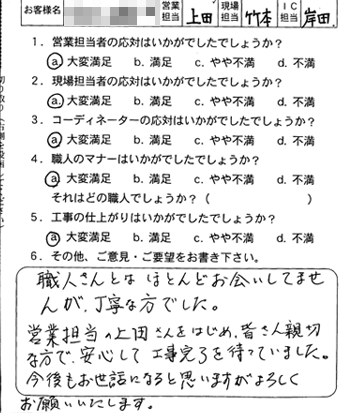 お客様名 営業担当 上田 現場担当 竹本 IC担当 岸田
1．営業担当者の応対はいかがでしたでしょうか？
a. 大変満足 b. 満足 c. やや不満 d. 不満
2．現場担当者の応対はいかがでしたでしょうか？
a. 大変満足 b. 満足 c. やや不満 d. 不満
3．コーディネーターの応対はいかがでしたでしょうか？
a. 大変満足 b. 満足 c. やや不満 d. 不満
4．職人のマナーはいかがでしたでしょうか？
a. 大変満足 b. 満足 c. やや不満 d. 不満
それはどの職人でしょうか？（ ）
5．工事の仕上がりはいかがでしたでしょうか？
a. 大変満足 b. 満足 c. やや不満 d. 不満
6．その他、ご意見・ご要望をお書き下さい。
職人さんとは ほとんどお会いしてませ
んが、丁寧な方でした。
営業担当の上田さんをはじめ、皆さん親切
な方で、安心して 工事完了を待っていました。
今後もお世話になると思いますがよろしく
お願いいたします。